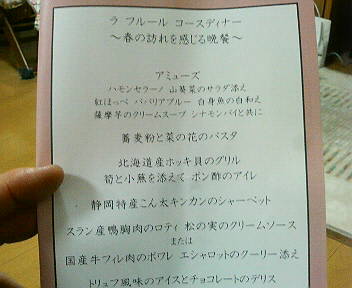 ラ フルール コースディナー
～春の訪れを感じる晩餐～
アミューズ
ハモンセラーノ 山葵菜のサラダ添え
紅ほっぺ ババリアブルー 白身魚の白和え
薩摩芋のクリームスープ シナモンパイと共に
蕎麦粉と菜の花のパスタ
北海道産ホッキ貝のグリル
筍と小蕪を添えて ポン酢のアイレ
静岡特産こん太キンカンのシャーベット
スラン産鴨胸肉のロティ 松の実のクリームソース
または
国産牛フィレ肉のポワレ エシャロットのクーリー添え
トリュフ風味のアイスとチョコレートのデリス